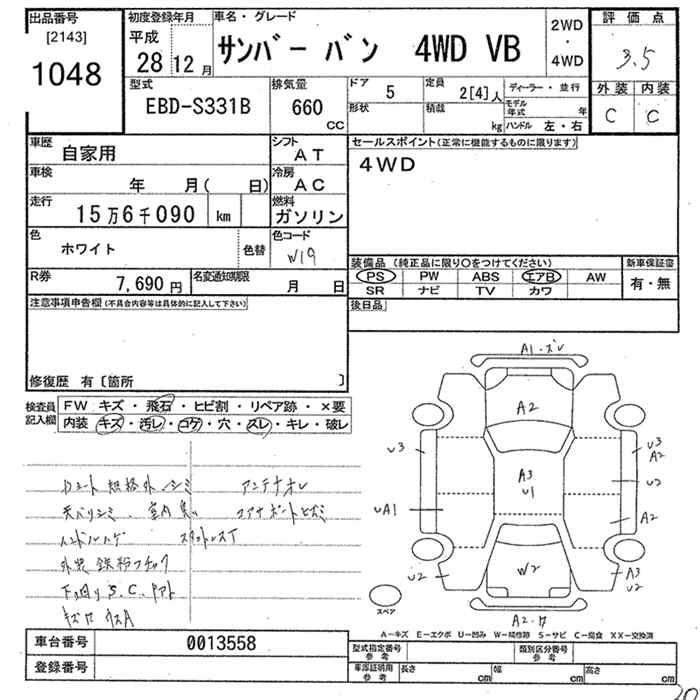 出品番号
[2143]
1048
初度登録年月
平成
28 12月
車名・グレード
サンバー バン 4WD VB
2WD
・
4WD
評価点
3.5
外装 内装
C C
型式
EBD-S331B
排気量
660
CC
ドア
5
定員
2[4]人
ディーラー・並行
形状
積載
kg
モデル年式 年
ハンドル 左・右
車歴
自家用
シフト
AT
車検
年 月( 日)
冷房
AC
走行
15万6千090 km
燃料
ガソリン
色
ホワイト
色替
色コード
W19
R券
7,690円
名変通知期限
月 日
セールスポイント(正常に機能するものに限ります)
4WD
装備品 (純正品に限り○をつけてください)
新車保証書
PS PW ABS エアB AW
SR ナビ TV カワ
有・無
後日品
注意事項申告欄(不具合内容等は具体的に記入して下さい)
修復歴 有〔箇所 〕
検査員記入欄
FW キズ・飛石・ヒビ割・リペア跡・×要
内装 キズ・汚レ・コゲ・穴・スレ・キレ・破レ
シート規格外、シミ アンテナオレ
天バリシミ、室内臭い コアサポートヒズミ
ハンドルハゲ スタットレスT
下回りS、C、
A1・ズレ
A2
A3
U1
W2
U3
UA1
U2
U3
A2
U2
A2
A3
U2
A2・ワ
スペア
A-キズ E-エクボ U-凹み W-補修跡 S-サビ C-腐食 XX-交換済
車台番号
0013558
登録番号
型式指定番号
参考
類別区分番号
参考
車庫証明用
参考
長さ cm
幅 cm
高さ cm